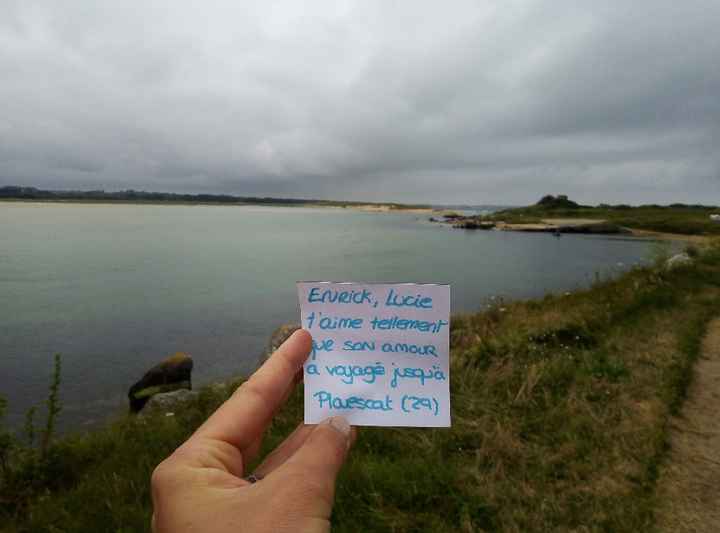 Enrick, Lucie
t'aime tellement
que son amour
a voyagé jusqu'à
Plouescat (29)